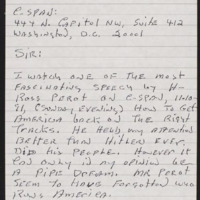 C-SPAN:
444 N. Capitol NW, Suite 412
Washington, D.C. 20001
SIR:
I WATCH ONE OF THE MOST
FASCINATING SPEECH BY H-
ROSS PEROT ON C-SPAN, 11-10-
91, (SUNDAY EVENING) HOW TO GET
AMERICA BACK ON THE RIGHT
TRACKS. HE HELD MY ATTENTION
BETTER THAN HITLER EVER
DID HIS PEOPLE. HOWEVER IT
CAN ONLY IN MY OPINION BE
A PIPE DREAM. MR PEROT
SEEM TO HAVE FORGOTTEN WHO
RUNS AMERICA.